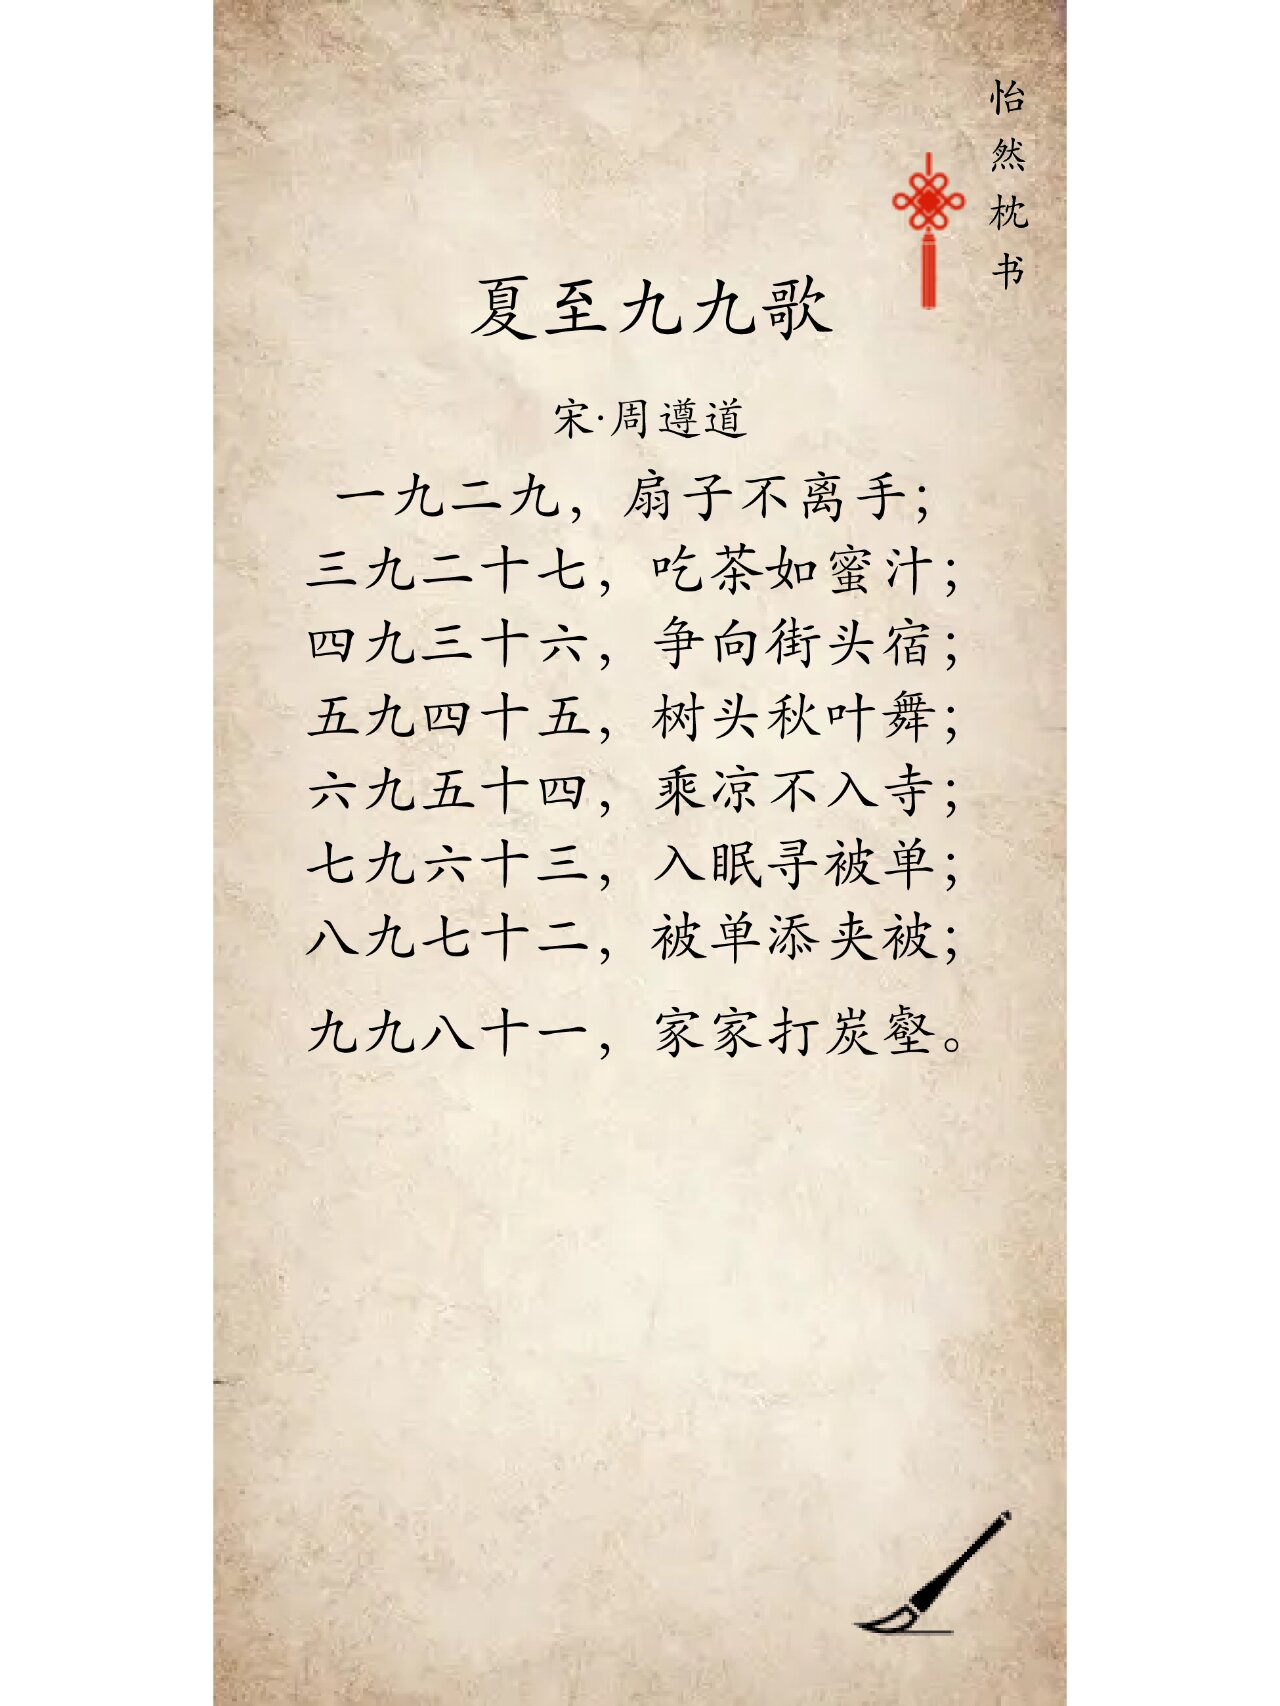 怡然枕书
夏至九九歌
宋·周遵道
一九二九，扇子不离手；
三九二十七，吃茶如蜜汁；
四九三十六，争向街头宿；
五九四十五，树头秋叶舞；
六九五十四，乘凉不入寺；
七九六十三，入眠寻被单；
八九七十二，被单添夹被；
九九八十一，家家打炭壑。